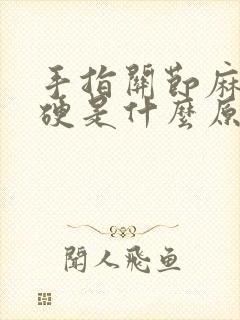 手指關節麻
硬是什麼原
聞人飛魚